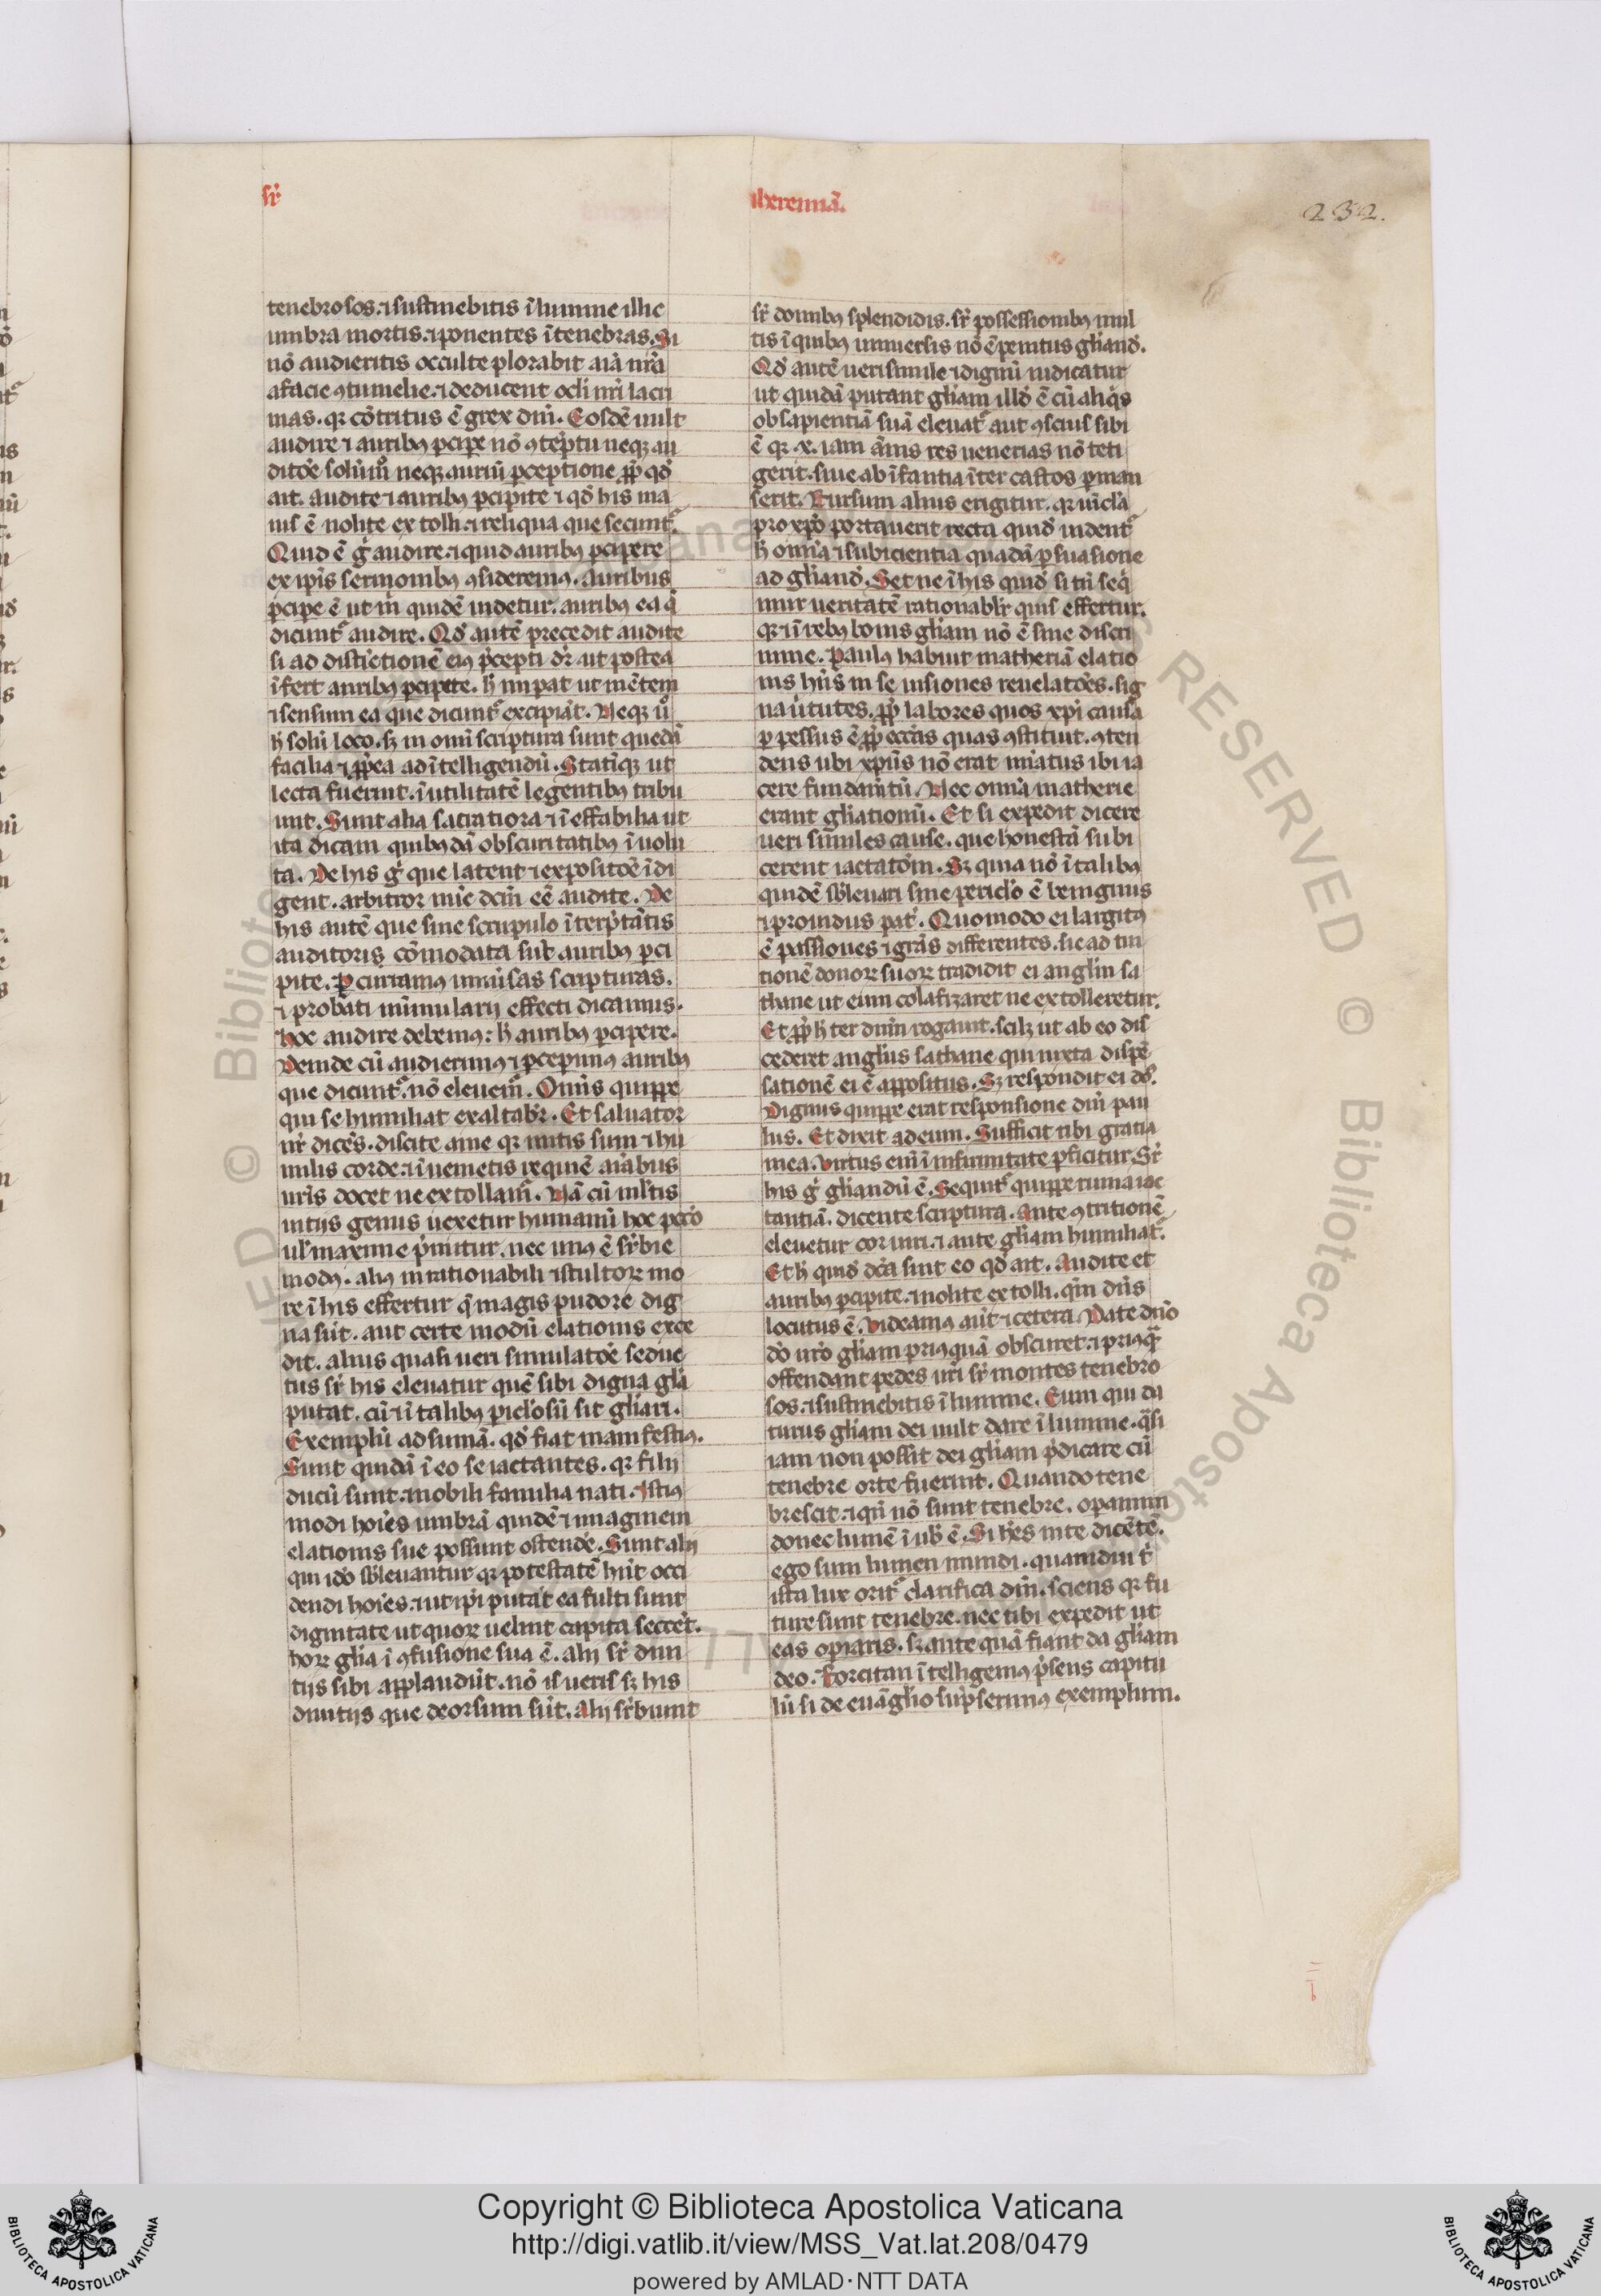 sr̄
iheremiā.
232.
tenebrosos. ⁊ sustinebitis ī lumine illic
umbra mortis. ⁊ ponentes ī tenebras. Si
nō audieritis occulte plorabit aīa nr̄a
a facie ꝯtumelie. ⁊ deducent ocl̓i nr̄i lacri
mas. qr cōtritus ē grex dn̄i. Eosdē uult
audire ⁊ auribꝰ ꝑcipe nō ꝯteptu neqꝫ au
ditōe solūm̊ neqꝫ auriū ꝑceptione ꝓp̄ qd̓
ait. audite ⁊ auribꝰ ꝑcipite ⁊ qd̓ his ma
ius ē nolite extolli. ⁊ reliqua que secunt᷑.
Quid ē g̓ audire. ⁊ quid auribꝰ ꝑcipere
ex ip̄is sermonibꝰ ꝯsideremꝰ. auribus
ꝑcipe ē ut m̓ quidē uidetur. auribꝰ ea q̄
dicunt᷑ audire. Qd̓ autē precedit audite
si ad distīctionē eiꝰ p̓cepti dr̄ ut postea
īfert auribꝰ ꝑcipite. h̓ imꝑat ut mētem
⁊ sensum ea que dicunt᷑ excipiāt. Neqꝫ u̓
h̓ solū loco. sꝫ in omī scriptura sunt quedā
facilia ⁊ ꝓp̄ea ad ītelligendū. Statīqꝫ ut
lecta fuerint. ī utilitatē legentibꝰ tribu
unt. Sunt alia sacratiora ⁊ ī effabilia ut
ita dicam quibꝰdā obscuritatibꝰ īuolu
ta. De his g̓ que latent ⁊ expositōe īdi
gent. arbitror nūc dc̄m eē audite. De
his autē que sine scrupulo īterp̄tātis
auditoris cōmodata sūt auribꝰ ꝑci
pite. Ꝑcurramꝰ uniūsas scripturas.
⁊ probati nūmularij effecti dicamus.
hoc audire debemꝰ: h̓ auribꝰ ꝑcipere.
Deinde cū audierimꝰ ⁊ ꝑcepimꝰ auribꝰ
que dicunt᷑. nō eleuem᷑. Omīs quippe
qui se humiliat exaltabr̄. Et saluator
nr̄ dicēs. discite a me qr mitis sum ⁊ hu
milis corde. ⁊ īuenietis requiē aīabus
uris docet ne extollam᷑. Nā cū ml̓tis
uitijs genus uexetur humanū hoc pctō
ul̓ maxime p̓mitur. nec unꝰ ē suꝑbie
modꝰ. aliꝰ inrationabili ⁊ stultoꝝ mo
re ī his effertur q̄ magis pudore dig
na sūt. aut certe modū elationis exce
dit. alius quasi ueri simulatōe seduc
tus sr̄ his eleuatur quē sibi digna gl̓a
putat. cū ⁊ ī talibꝰ ꝑicl̓osū sit gl̓iari.
Exemplū ad sumā. qd̓ fiat manifestiꝰ.
Sunt quidā ī eo se iactantes. qr filij
ducū sunt. ⁊ nobili familia nati. Istiꝰ
modi hoīes umbrā quidē ⁊ imaginem
elationis sue possunt ostendē. Sunt alij
qui ido̓ sb̓leuantur qr potestatē hn̄t occi
dendi hoīes. ⁊ ut ip̄i putāt ea fulti sunt
dignitate ut quoꝝ uelint capita seccēt.
hoꝝ gl̓ia ī ꝯfusione sua ē. alij sr̄ diui
tijs sibi applaudūt. nō is ueris sꝫ his
diuitijs que deorsum sūt. Alij suꝑbiunt
sr̄ domibꝰ splendidis. sr̄ possessionibꝰ mul
tis ī quibꝰ uniuersis nō ē penitus gl̓iand̓.
Qd̓ autē ueri simile ⁊ dignū iudicatur
ut quidā putant gl̓iam illd̓ ē cū aliq̄s
ob sapientiā suā eleuat᷑ aut ꝯscius sibi
ē qr .x. iam ānis res uenerias nō teti
gerit. siue ab īfantia īter castos ꝑman
serit. Rursum alius erigitur. qr uīcl̓a
pro xp̄o portauerit recta quid̓ uident᷑
h̓ omīa ⁊ subicientia quadā ꝑsuasione
ad gl̓iand̓. Set ne ī his quid̓ si ūi seq̄
mur ueritatē rationabil̓r quis effertur.
qr ⁊ ī rebꝰ bonis gl̓iam nō ē sine discri
mine. Paulꝰ habuit matheriā elatio
nis hūs in se uisiones reuelatōes. sig
na ūtutes. ꝓp̄ labores quos xp̄i causa
ꝑpessus ē ꝓp̄ ecc̄as quas ꝯstituit. ꝯten
dens ubi xp̄us nō erat noīatus ibi ia
cere fundam̄tū. Nec omīa matherie
erant gl̓iationū. Et si expedit dicere
ueri similes cause. que honestā subi
cerent iactatōm. Sꝫ quia nō ī talibꝰ
quidē sb̓leuari sine pericl̓o ē benignus
⁊ prouidus pat̓. Quomodo ei largitꝰ
ē passiones ⁊ grās differentes. sic ad tui
tionē donoꝝ suoꝝ tradidit ei angl̓m sa
thane ut eum colafizaret ne extolleretur.
Et ꝓp̄ h̓ ter dn̄m rogauit. scilꝫ ut ab eo dis
cederet angl̓us sathane qui iuxta dispē
sationē ei ē appositus. Sꝫ respondit ei do̓.
Dignus quippe erat responsione dn̄i pau
lus. Et dixit ad eum. Sufficit tibi gratia
mea. Virtus enī ī infirmitate ꝑficitur. Sr̄
his g̓ gl̓iandū ē. Sequit᷑ quippe ruina iac
tantiā. dicente scriptura. Ante ꝯtritionē
eleuetur cor uiri. ⁊ ante gl̓iam humiliat᷑.
Et h̓ quid̓ dc̄a sint eo qd̓ ait. Audite et
auribꝰ ꝑcipite. ⁊ nolite extolli. qm̄ dn̄s
locutus ē. Videamꝰ aūt ⁊ cetera. Date dn̄o
do̓ uro̓ gl̓iam priꝰquā obscuret. ⁊ priꝰq̄
offendant pedes uri̓ sr̄ montes tenebro
sos. ⁊ sustinebitis ī lumine. Eum qui da
turus gl̓iam dei uult dare ī lumine. q̄si
iam non possit dei gl̓iam p̓dicare cū
tenebre orte fuerint. Quando tene
brescit. ⁊ qn̄ nō sunt tenebre. opamini
donec lumē ī ub̓ ē. Si h̓es in te dicētē.
ego sum lumen mundi. quamdiu t̓
ista lux orit᷑ clarifica dn̄m. sciens qr fu
ture sunt tenebre. nec tibi expedit ut
eas opiaris. sꝫ ante quā fiant da gl̓iam
deo. Forcitan ītelligemꝰ p̓sens capitu
lū si de euāgl̓io sup̓serimꝰ exemplum.
Copyright © Biblioteca Apostolica Vaticana
http://digi.vatlib.it/view/MSS_Vat.lat.208/0479
powered by AMLAD·NTT DATA